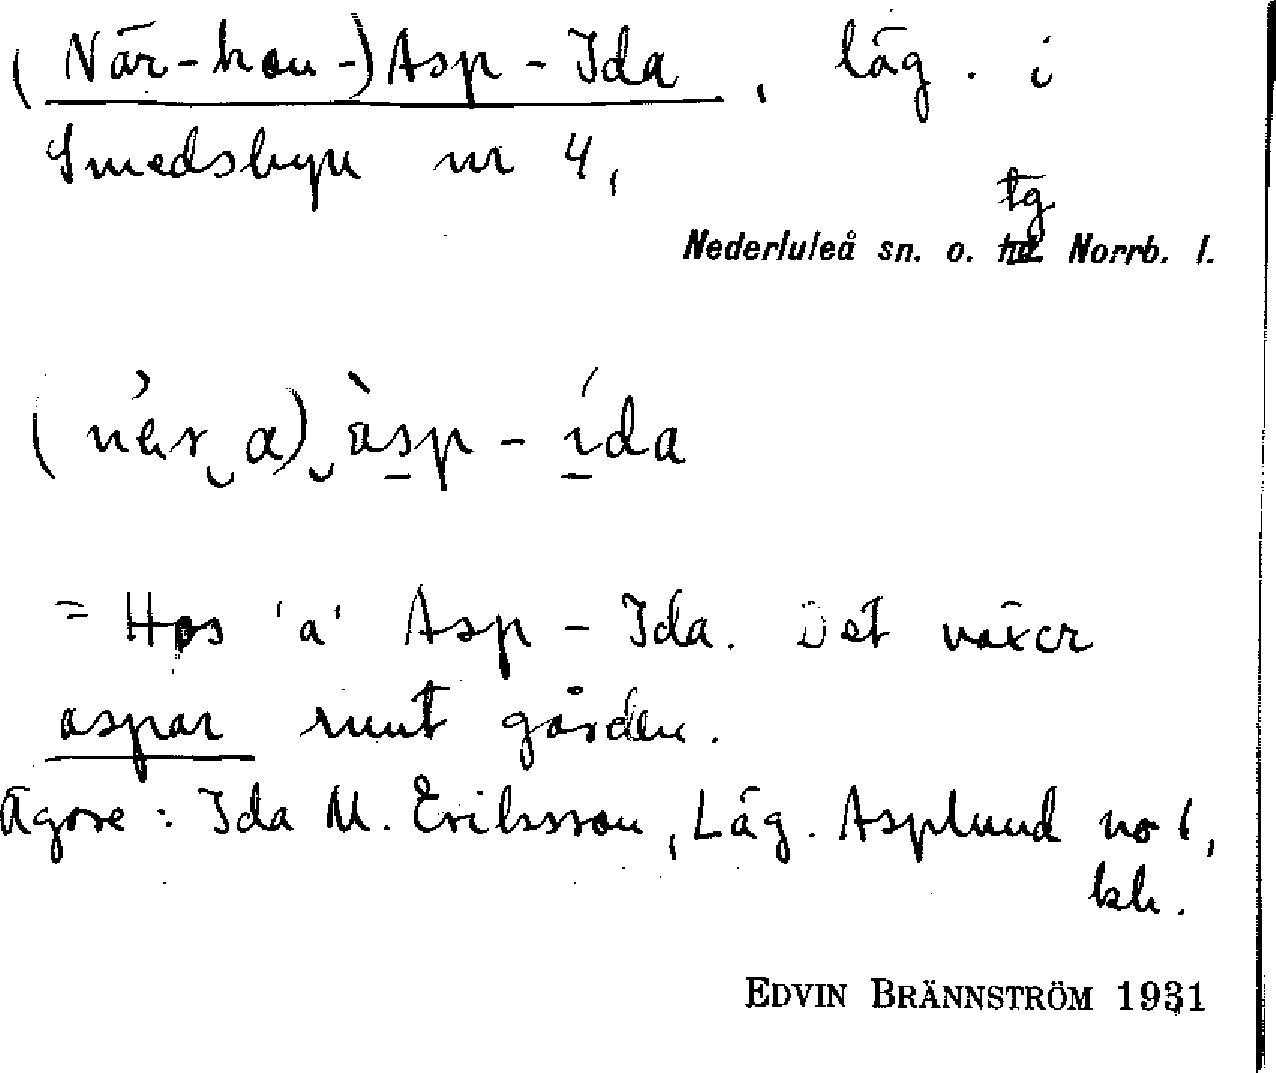 (När-hon-) Asp-Ida, läg. i
Smedsbyn nr 4,
tg
Nederluleå sn. o. Norrb. l.
(når‿a)‿àsp-ída
= Hos 'a' Asp-Ida. Det växer
aspar runt gården.
Ägare: Ida M. Eriksson, Läg. Asplund no 1,
kh.
EDVIN BRÄNNSTRÖM 1931